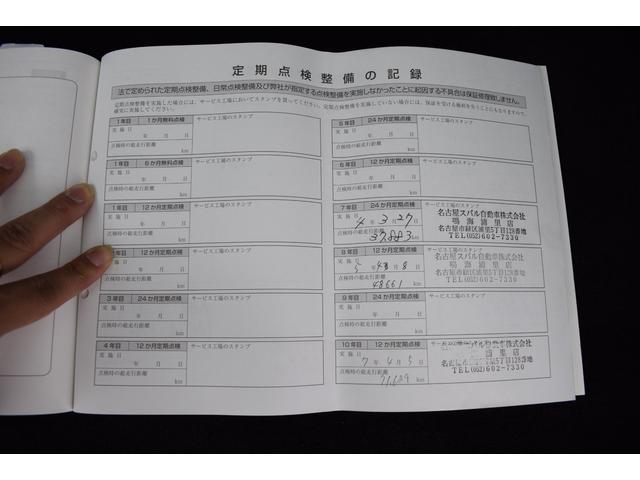 定期点検整備の記録
法で定められた定期点検整備、日常点検整備及び弊社が指定する点検整備を実施しなかったことに起因する不具合は保証修理致しません。
定期点検整備を実施した場合には、サービス工場においてスタンプを貰ってください。定期点検整備を実施していない場合には、保証を受ける権利を失うことにもなりますので、
確実に実施してください。
1年目 1か月無料点検 サービス工場のスタンプ
実施日
年 月 日
点検時の総走行距離
km
1年目 6か月無料点検 サービス工場のスタンプ
実施日
年 月 日
点検時の総走行距離
km
1年目 12か月定期点検 サービス工場のスタンプ
実施日
年 月 日
点検時の総走行距離
km
年目 12か月定期点検 サービス工場のスタンプ
実施日
年 月 日
点検時の総走行距離
km
3年目 24か月定期点検 サービス工場のスタンプ
実施日
年 月 日
点検時の総走行距離
km
4年目 12か月定期点検 サービス工場のスタンプ
実施日
年 月 日
点検時の総走行距離
km
5年目 24か月定期点検 サービス工場のスタンプ
実施日
年 月 日
点検時の総走行距離
km
6年目 12か月定期点検 サービス工場のスタンプ
実施日
年 月 日
点検時の総走行距離
km
7年目 24か月定期点検 サービス工場のスタンプ
実施日
4年3月27日
点検時の総走行距離
37,883 km
名古屋スバル自動車株式会社
鳴海浦里店
名古屋市緑区浦里5丁目128番地
TEL(052)602-7330
8年目 12か月定期点検 サービス工場のスタンプ
実施日
5年4月8日
点検時の総走行距離
48661 km
名古屋スバル自動車株式会社
鳴海浦里店
名古屋市緑区浦里5丁目128番地
TEL(052)602-7330
9年目 24か月定期点検 サービス工場のスタンプ
実施日
年 月 日
点検時の総走行距離
km
10年目 12か月定期点検 サービス工場のスタンプ
実施日
7年4月5日
点検時の総走行距離
km
名古屋スバル自動車株式会社
浦里店
丁目128番地
TEL(052)602-7330